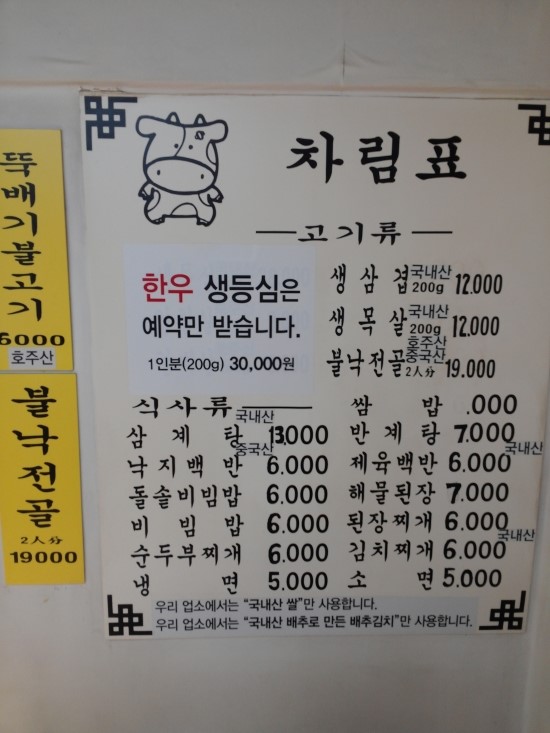 뚝배기불고기
6000
호주산
불낙전골
2人分
19000
차림표
고기류
한우 생등심은
예약만 받습니다.
1인분(200g) 30,000원
생삼겹 국내산 200g 12.000
생목살 국내산 200g 12.000
불낙전골 호주산 중국산 2人分 19.000
식사류
삼계탕 국내산 13,000
낙지백반 중국산 6.000
돌솥비빔밥 6.000
비빔밥 6.000
순두부찌개 6.000
냉면 5.000
쌈밥 .000
반계탕 7.000
제육백반 6.000 국내산
해물된장 7.000
된장찌개 6.000
김치찌개 6.000 국내산
소면 5.000
우리 업소에서는 "국내산 쌀"만 사용합니다.
우리 업소에서는 "국내산 배추로 만든 배추김치"만 사용합니다.